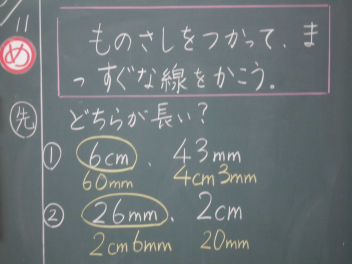 11
め
ものさしをつかって、ま
っすぐな線をかこう。
先 どちらが長い?
① 6cm、43mm
60mm 4cm3mm
② 26mm、2cm
2cm6mm 20mm